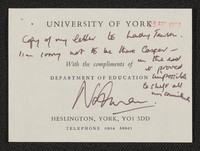 UNIVERSITY OF YORK
Copy of my letter to Lady
I'm sorry not to be there Casper —
in the end
With the compliments of
it proved
impossible
DEPARTMENT OF EDUCATION
to
HESLINGTON, YORK, YO1 5DD
TELEPHONE 0904 59861